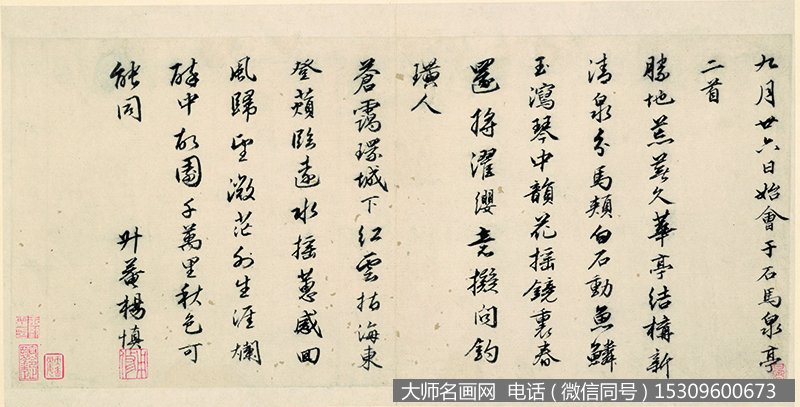 九月廿六日始會于石馬泉亭
二首
勝地荒蕪久華亭結構新
清泉分馬頰白石動魚鱗
玉瀉琴中韻花搖鏡裏春
還將濯纓意擬問釣
璜人
蒼靄環城下紅雲拍海東
登蘋臨遠水搖蕙感回
風歸望微茫外生涯爛
醉中故園千萬里秋色可
能同
升菴楊慎
大师名画网 电话（微信同号）15309600673